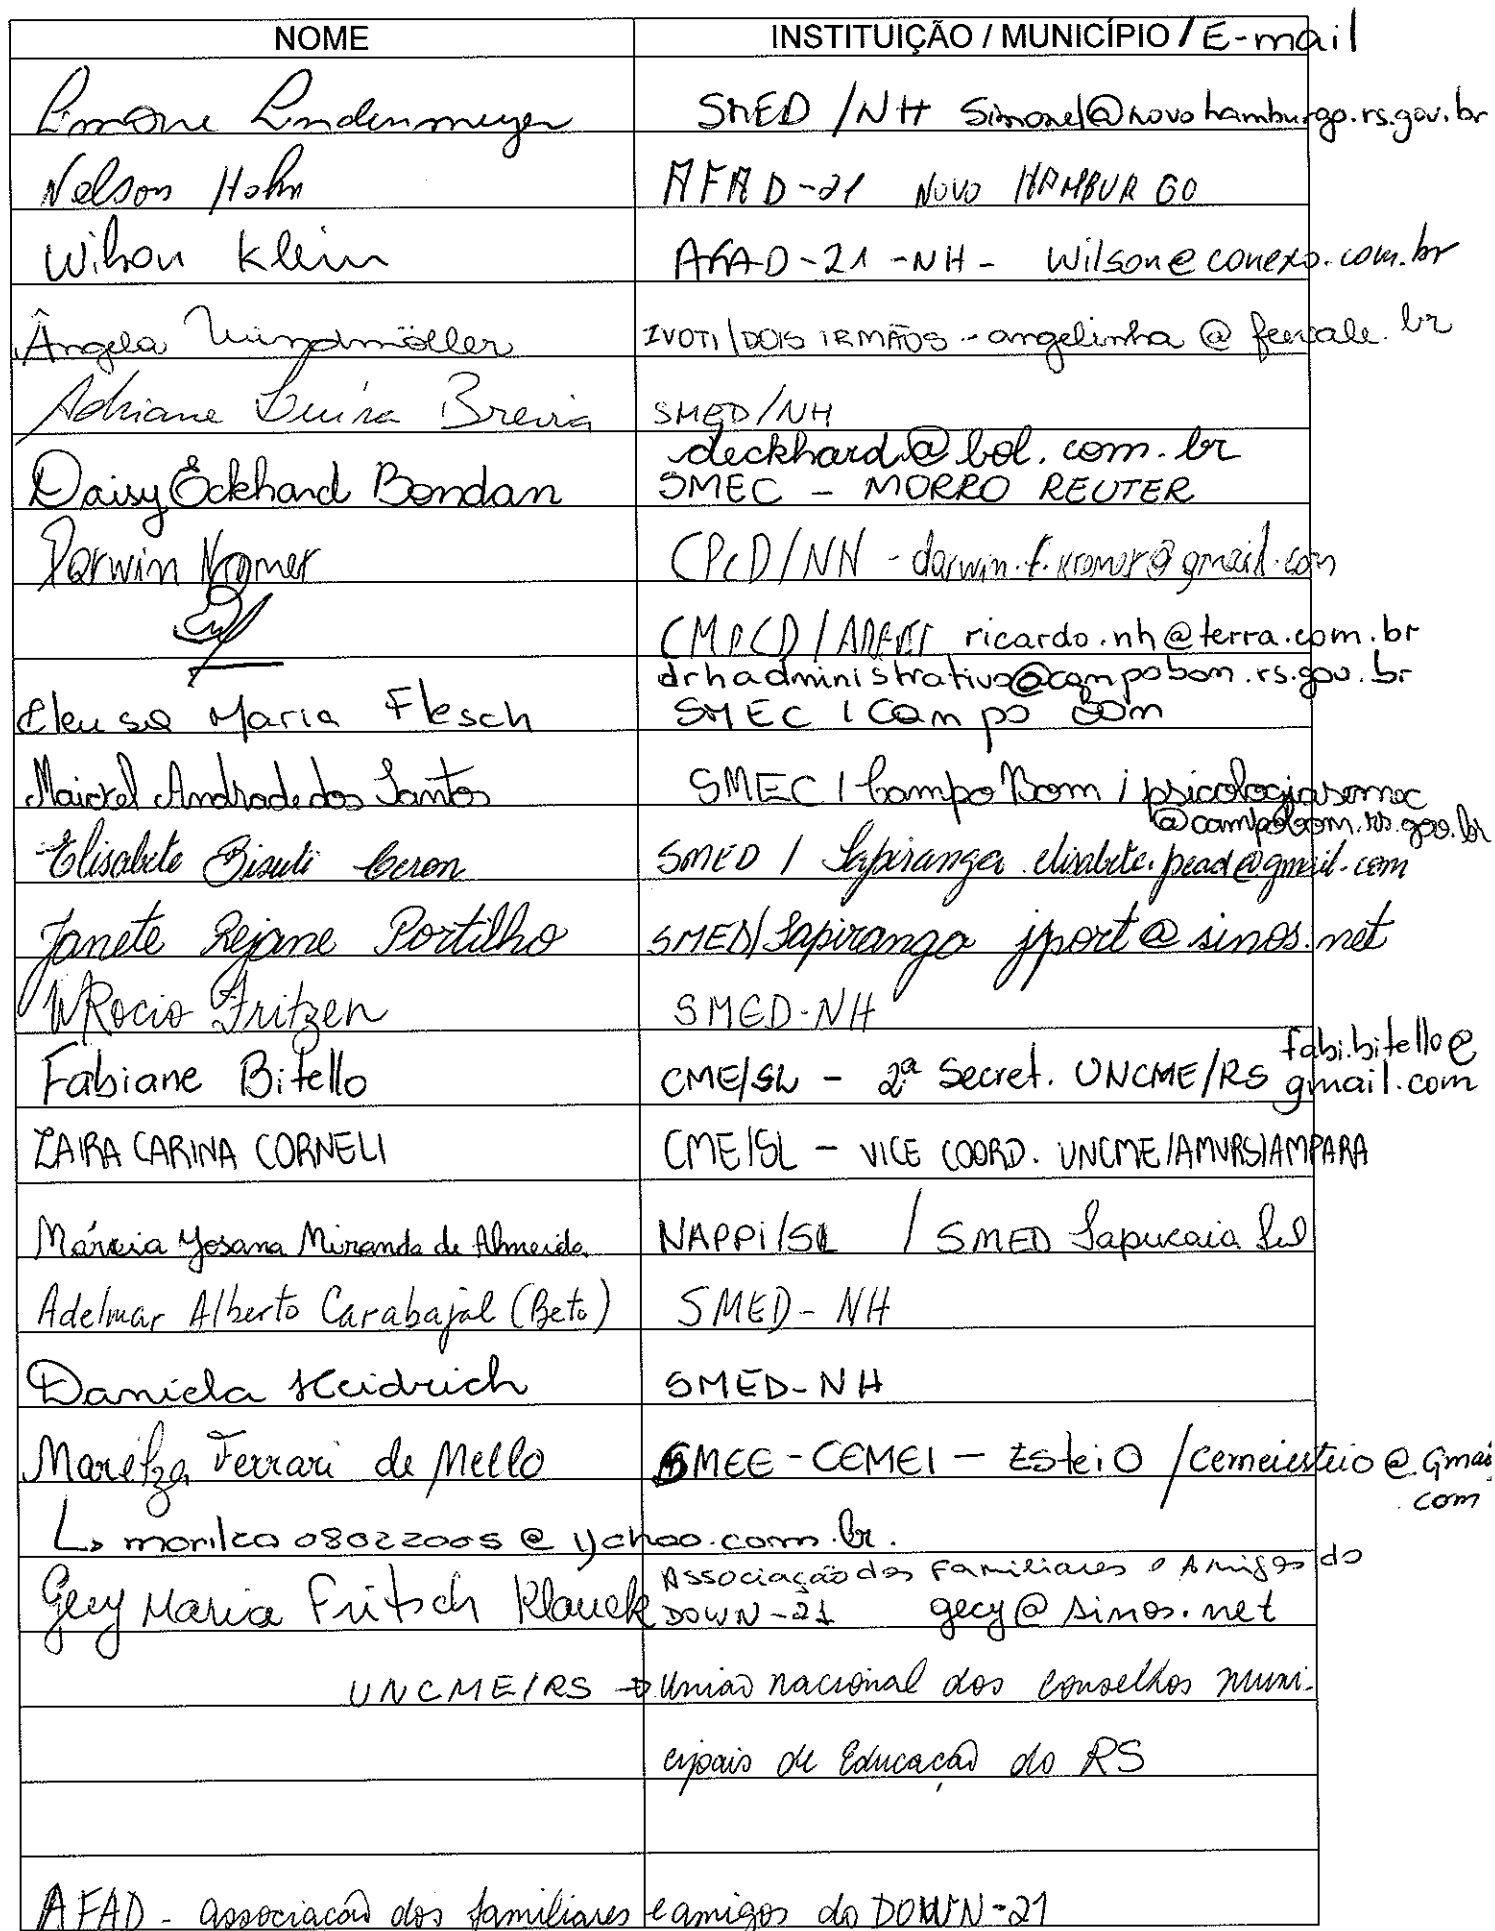 NOME INSTITUIÇÃO / MUNICÍPIO / E-mail
Simone Lindenmeyer SMED / NH Simonel@novohamburgo.rs.gov.br
Nelson Hohn AFAD-21 NOVO HAMBURGO
Wilson Klein AFAD-21 -NH- wilson@conexo.com.br
Ângela Windmöller IVOTI/DOIS IRMÃOS - angelinha @ feevale.br
Adriane Luiza SMED/NH
deckhard@bol.com.br
Daisy Eckhard Bondan SMEC - MORRO REUTER
Darwin Kromer CPcD/NH - darwin.f.kromer@gmail.com
CMPCD / ricardo.nh@terra.com.br
drhadministrativo@campobom.rs.gov.br
Cleusa Maria Flesch SMEC / Campo Bom
Maickel Andrade dos Santos SMEC / Campo Bom / psicologiasmec
@campobom.rs.gov.br
Elisabete Ceron SMED / Sapiranga elisabete.pead@gmail.com
Janete Rejane Portilho SMED/Sapiranga jport@sinos.net
WRocio Fritzen SMED-NH
fabi.bitello@
Fabiane Bitello CME/SL - 2ª Secret. UNCME/RS gmail.com
ZAIRA CARINA CORNELI CME/SL - VICE COORD. UNCME/AMVRS/AMPARA
Márcia Yosana Miranda de Almeida NAPPI/SL / SMED Sapucaia Sul
Adelmar Alberto Carabajal (Beto) SMED-NH
Daniela Heidrich SMED-NH
MariLza Ferrari de Mello SMEE-CEMEI - EsteiO / cemeiesteio@Gmai
com
↳ marilza08022005@yahoo.com.br.
Associação dos Familiares e Amigos do
Gecy Maria Fritsch Klauck DOWN-21 gecy@sinos.net
UNCME/RS → União nacional dos conselhos muni-
cipais de Educação do RS
AFAD - associação dos familiares e amigos do DOWN-21